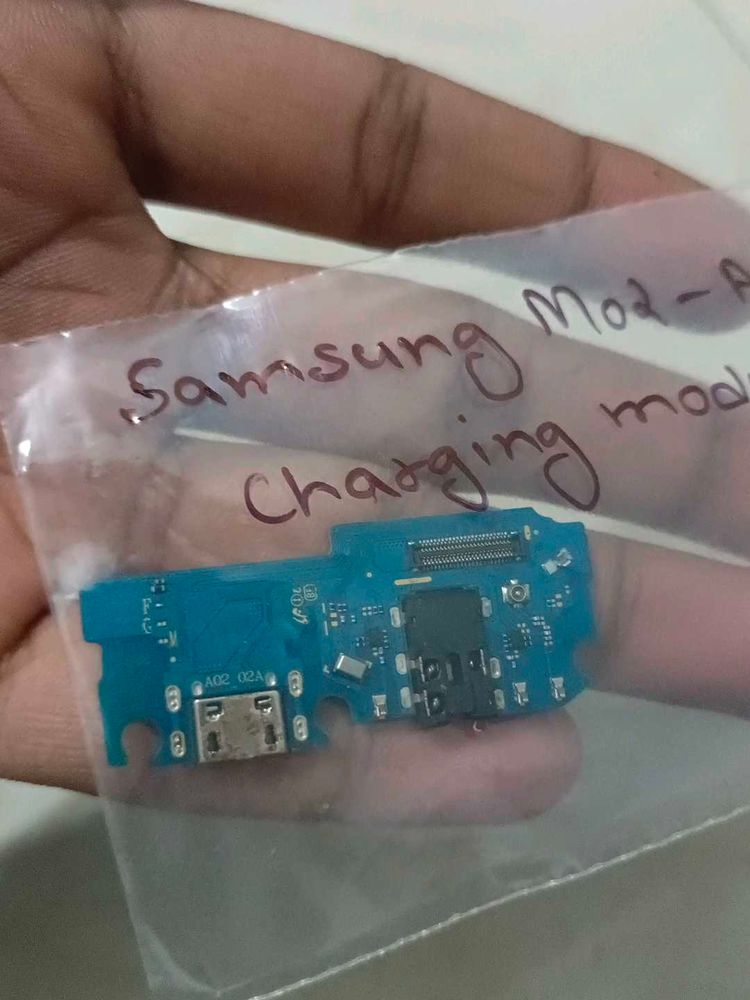 Samsung M02-A
Charging mod
A02 02A